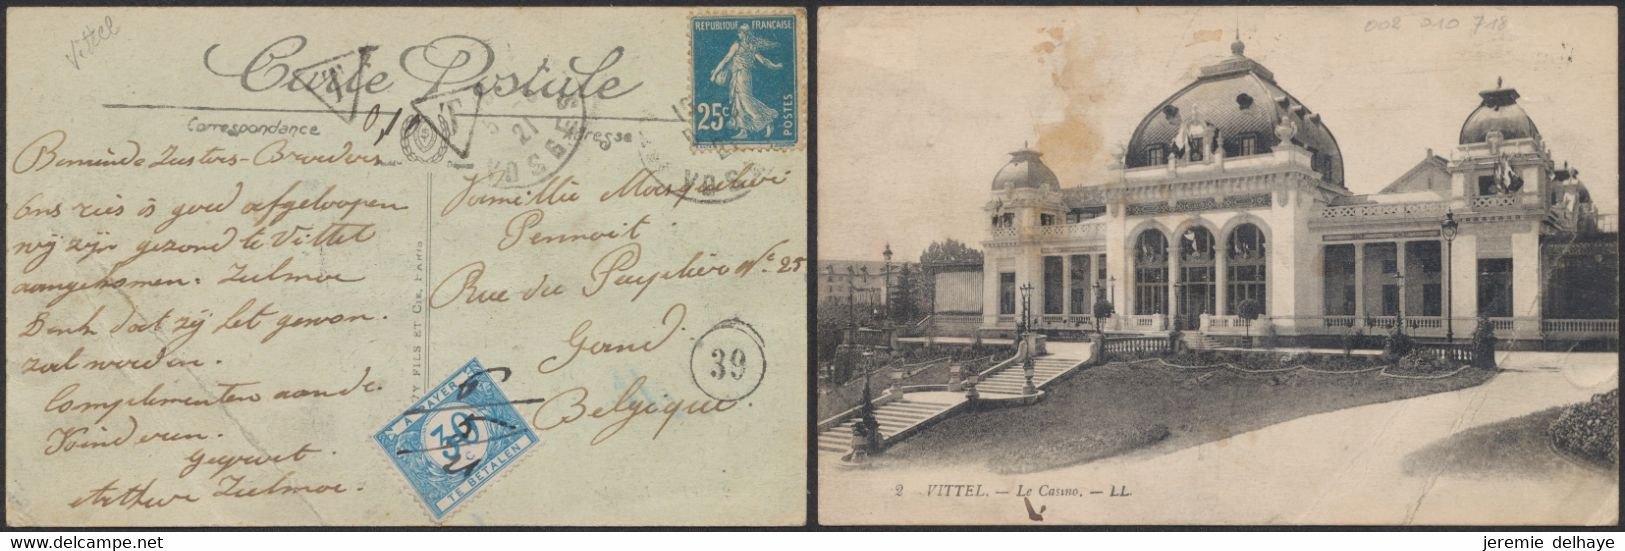 Vittel
Carte Postale
Correspondance
Adresse
T
0,10
T
REPUBLIQUE FRANÇAISE
25c
POSTES
21
VOSGES
VOSGES
Beminde Zusters-Broeders
Ons reis is goed afgeloopen
wij zijn gezond te Vittel
aangekomen. Zulmoe
Denk dat zij het gewon.
zal worden.
Complimenten aan de
Kinderen.
Gegroet
Arthur Zulmoe.
Rue du Peuplier N° 25
Gand
Belgique.
39
A PAYER
30
c
TE BETALEN
FILS ET CIE, PARIS
002 910 718
2 VITTEL. — Le Casino. — LL.
jeremie delhaye